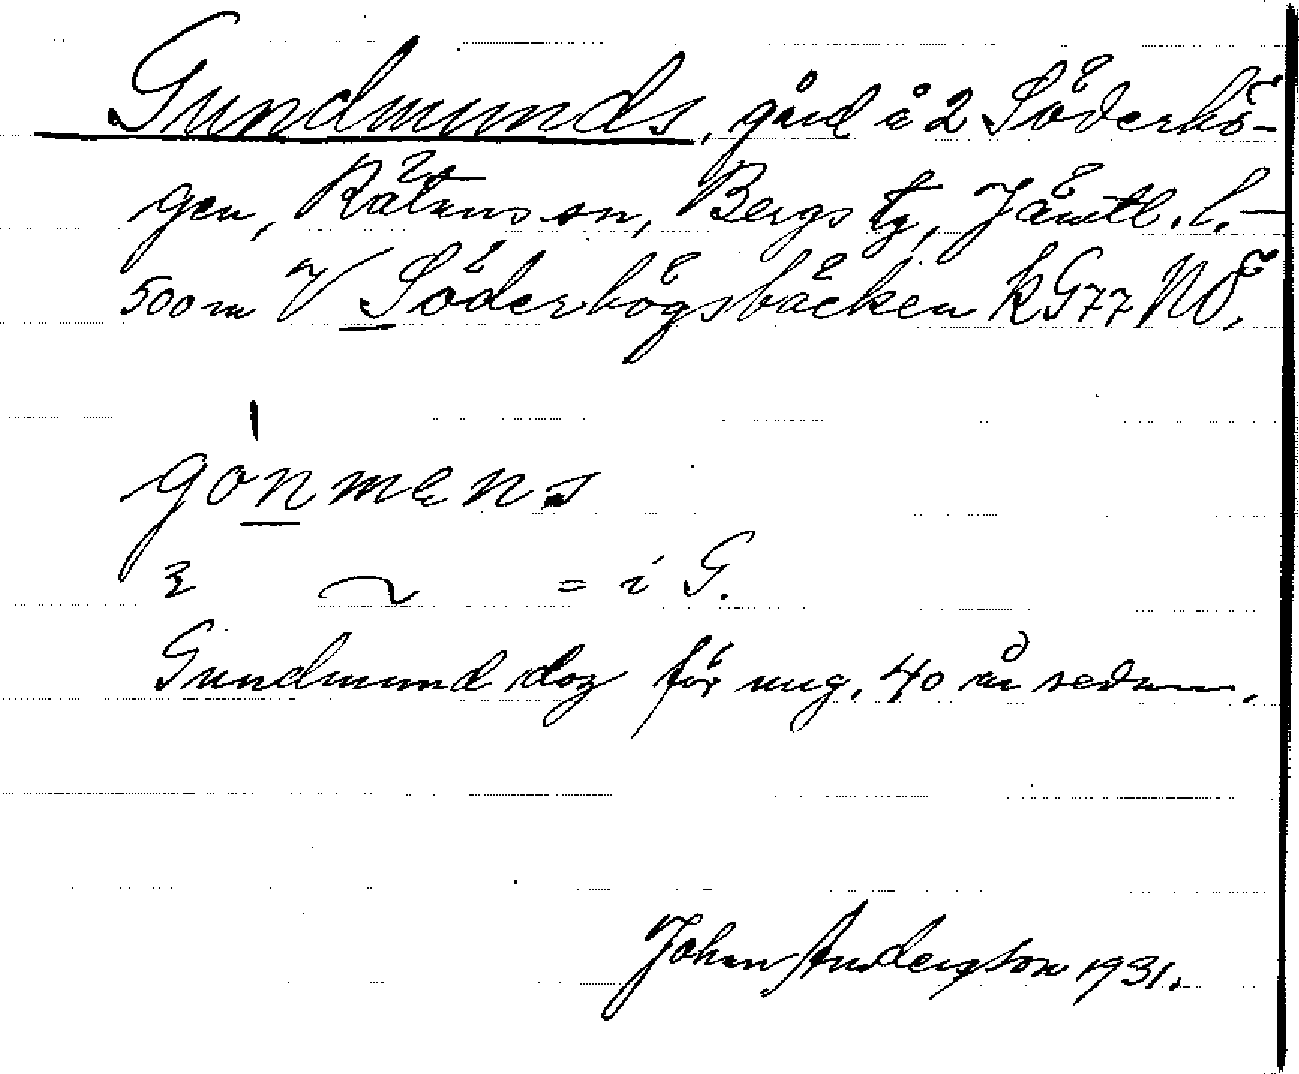 Gundmunds, gård i 2 Söderhö-
gen, Rätans sn, Bergs tg, Jämtl. l. –
500 m V Söderhögsbäcken kG77 NÖ.
gonmens
= i G.
Gundmund dog för ung. 40 år sedan.
John Andersson 1931.